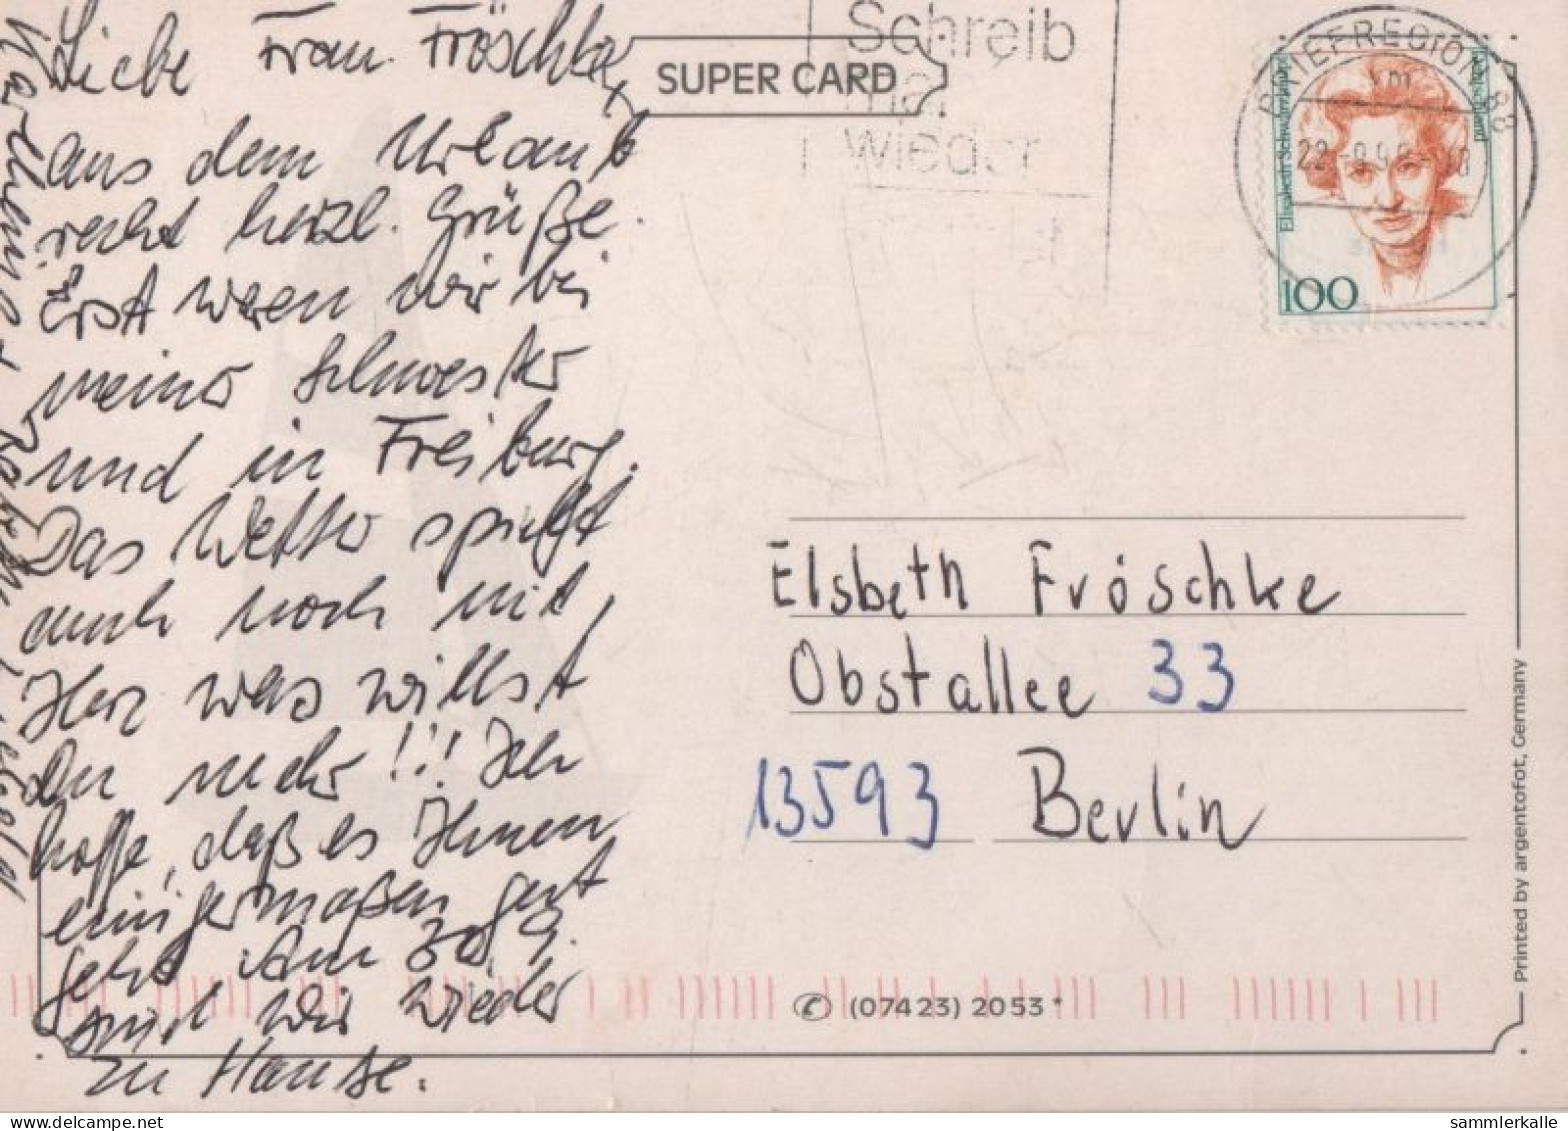 Liebe Frau Fröschke,
aus dem Urlaub
recht herzl. Grüße.
Erst waren wir bei
meiner Schwester
und in Freiburg.
Das Wetter spielt
auch noch mit,
Herz was willst
Du mehr!!! Ich
hoffe, daß es Ihnen
einigermaßen gut
geht. Am 30.9.
sind wir wieder
zu Hause.
SUPER CARD
Schreib
mal
wieder
BRIEFREGION 88
Elisabeth Schwarzhaupt
Deutsche Bundespost
100
Elsbeth Fröschke
Obstallee 33
13593 Berlin
✆ (07423) 2053
Printed by argentofot, Germany
sammlerkalle